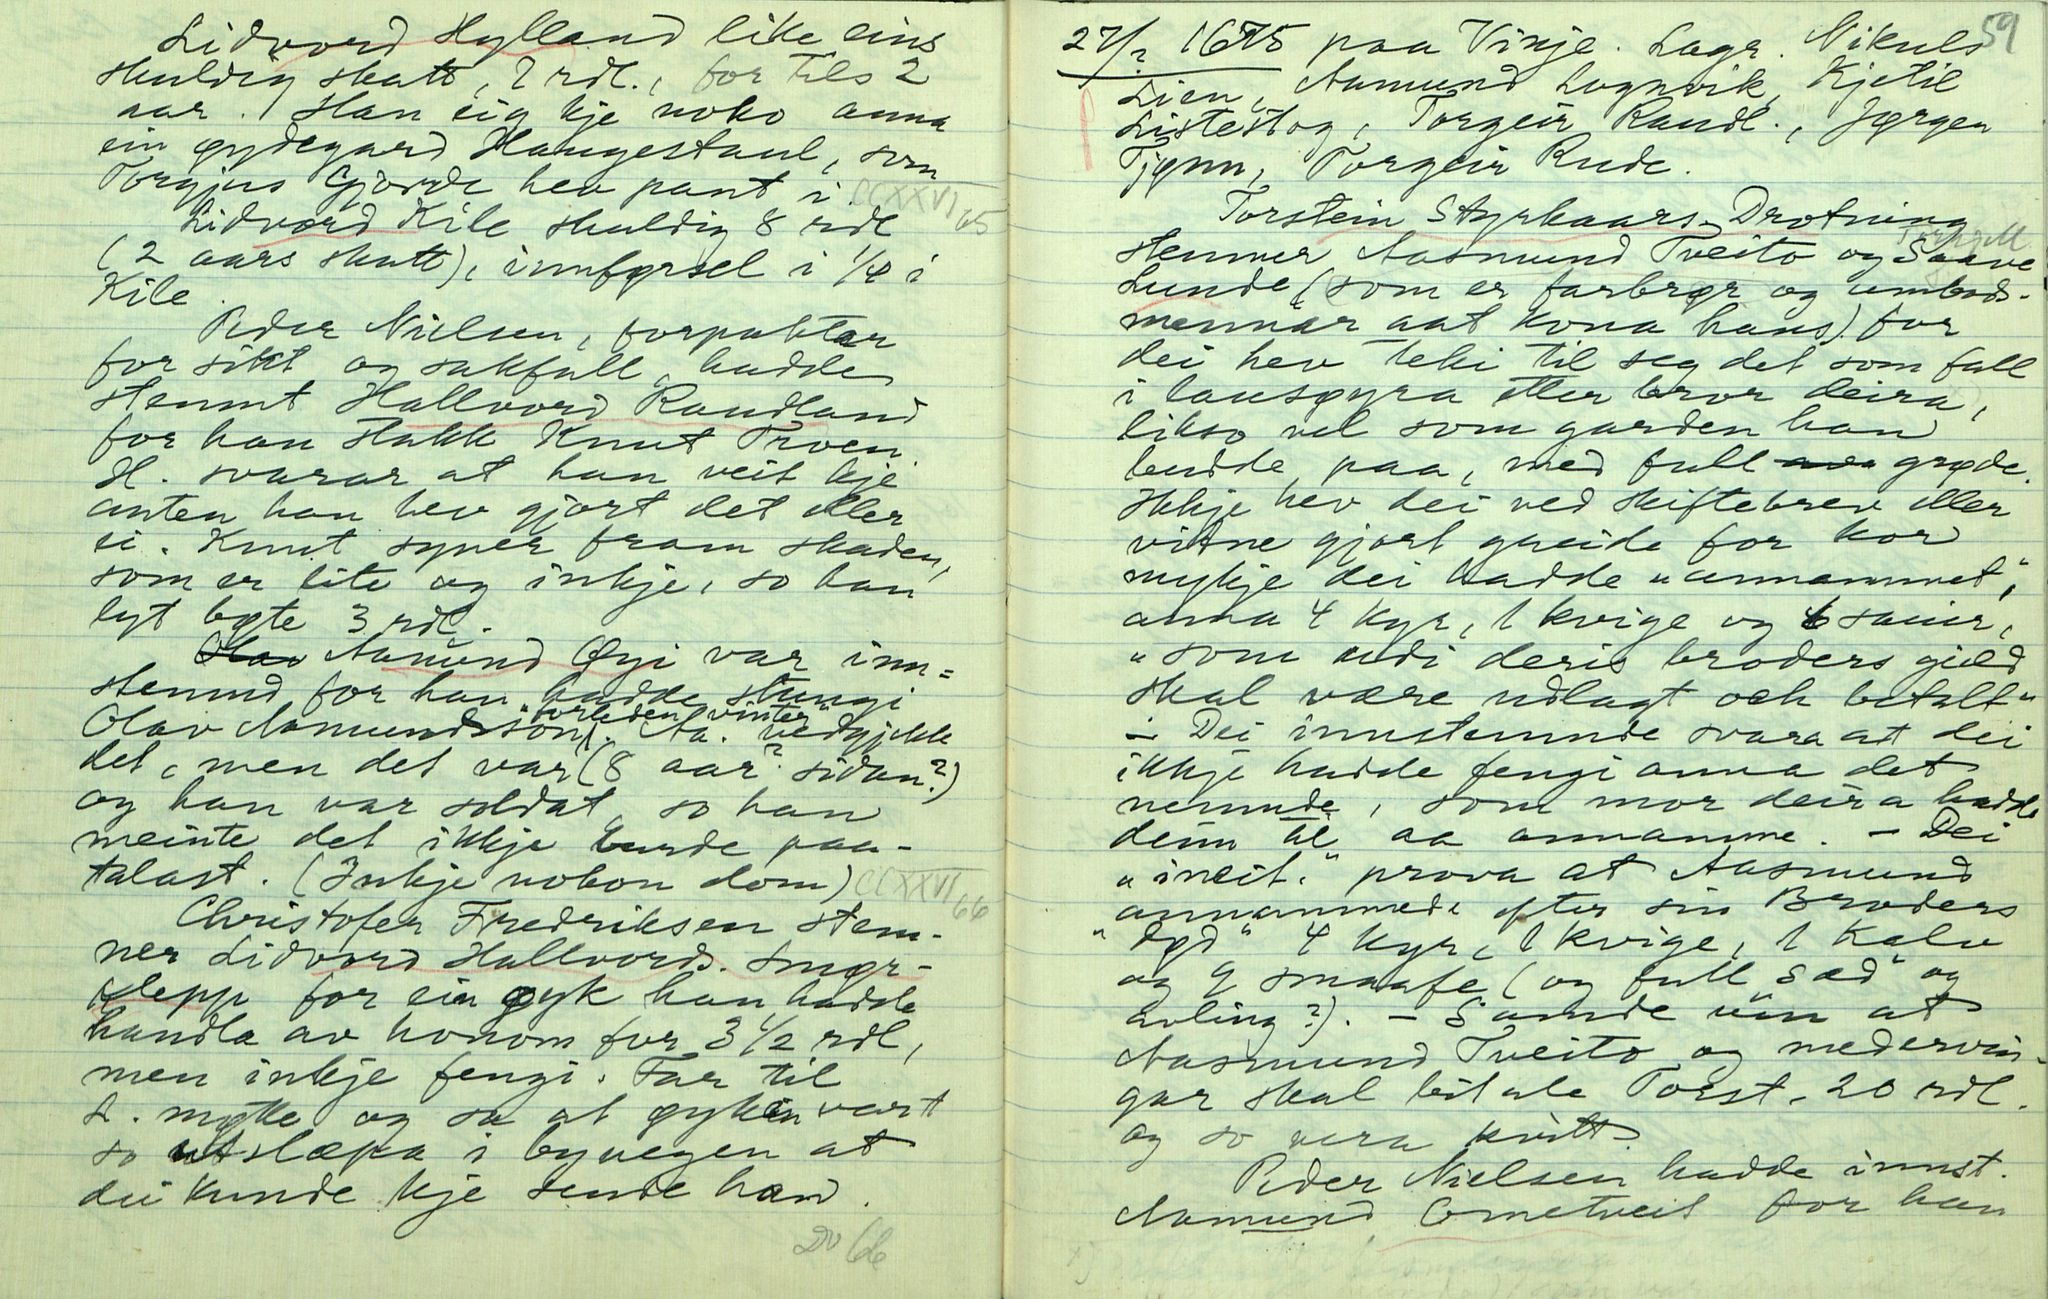 Lidvord Hylland like eins
skuldig skatt, 2 rdl., for tils 2
aar. Han eig kje noko anna
ein øydegard Haugestaul, som
Torgjus Gjorde hev pant i. CCXXVI 65
Lidvord Kile skuldig 8 rdl
(2 aars skatt), innførsel i 1/4 i
Kile.
Peder Nielsen, forpaktar
for sikt og sakfall, hadde
stemnt Hallvord Raudland
for han slakk Knut Troen.
H. svarar at han veit kje
anten han hev gjort det eller
ei. Knut syner fram skaden,
som er lite og inkje, so han
lyt bøte 3 rdl.
Olav Aamund Øyi var inn=
stemnd for han hadde stungi
Olav Aamundsson "forleden vinter". Aa. vedgjekk
det, men det var (8 aar? sidan?)
og han var soldat, so han
meinte det ikkje burde paa-
talast. (Inkje nokon dom) CCXXVI 66
Christofer Fredriksen stem-
ner Lidvord Hallvords. Smør-
klepp for ein øyk han hadde
handla av honom for 3 1/2 rdl,
men inkje fengi. Far til
L. møtte og sa at øyken vart
so utslæpa i byvegen at
dei kunde kje sende han.
66
59
27/2 1675 paa Vinje. Lagr. Nikuls
Lien, Aamund Lognvik, Kjetil
Listestog, Torgeir Raudl., Jørgen
Tjønn, Torgeir Rude.
Torstein Styrkaars. Drotning
stemner Aasmund Tveito og Saave
Lunde (som er farbrør og umbods-
mennar aat kona hans) for
dei hev teki til seg det som fall
i lausøyra etter bror deira,
likso vel som garden han
budde paa, med full grøde.
Ikkje hev dei ved skiftebrev eller
vitne gjort greide for kor
mykje dei hadde "annammet",
anna 4 kyr, 1 kvige og 6 sauir,
"som udi deris broders gield
skal være udlagt och betalt"
- Dei innstemnde svara at dei
ikkje hadde fengi anna det
nemnde, som mor deira hadde
deim til aa annamme. - Dei
"incit." prova at Aasmund
annammede efter sin Broders
"død" 4 kyr, 1 kvige, 1 kalv
og 9 smaafe (og full "sæd" og
avling?). - Samde um at
Aasmund Tveito og medervin-
gar skal betale Torst. 20 rdl.
og so vera kvitt.
Peder Nielsen hadde innst.
Aamund Ormetveit for han